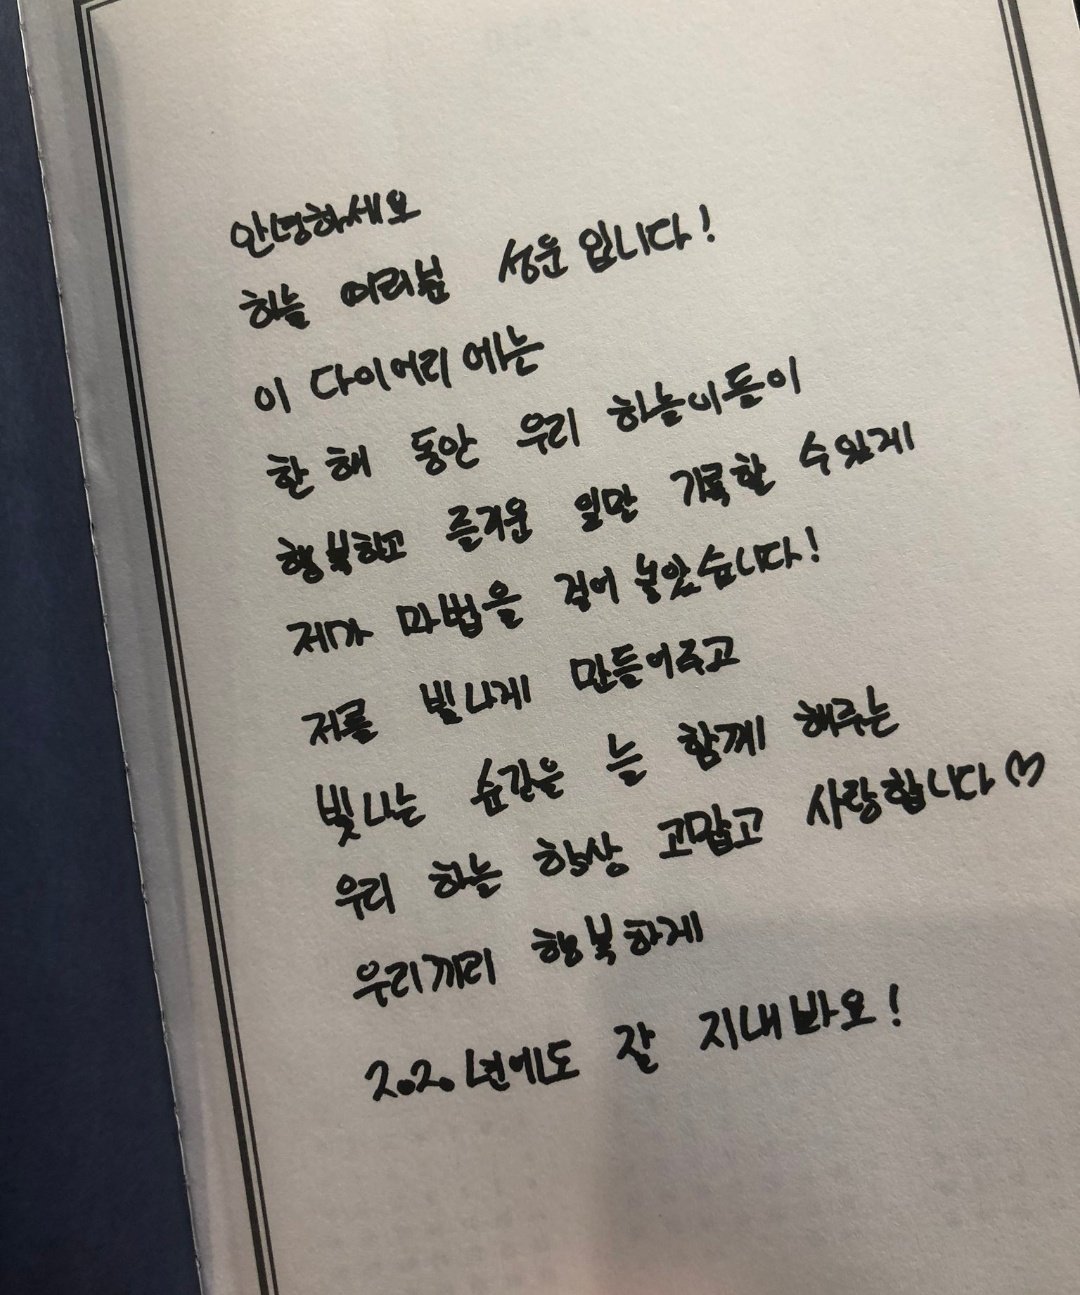 안녕하세요
하늘 여러분 성운입니다!
이 다이어리에는
한 해 동안 우리 하늘이들이
행복하고 즐거운 일만 기록할 수있게
제가 마법을 걸어 놓았습니다!
저를 빛나게 만들어주고
빛나는 순간을 늘 함께 해주는
우리 하늘 항상 고맙고 사랑합니다♡
우리끼리 행복하게
2020년에도 잘 지내봐요!